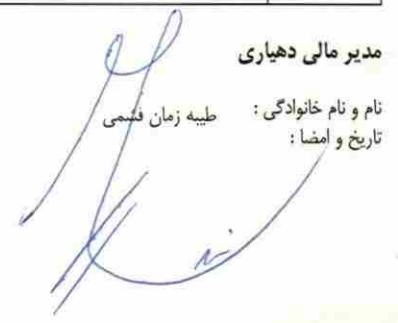 مدیر مالی دهیاری
نام و نام خانوادگی : طیبه زمان فشمی
تاریخ و امضا :